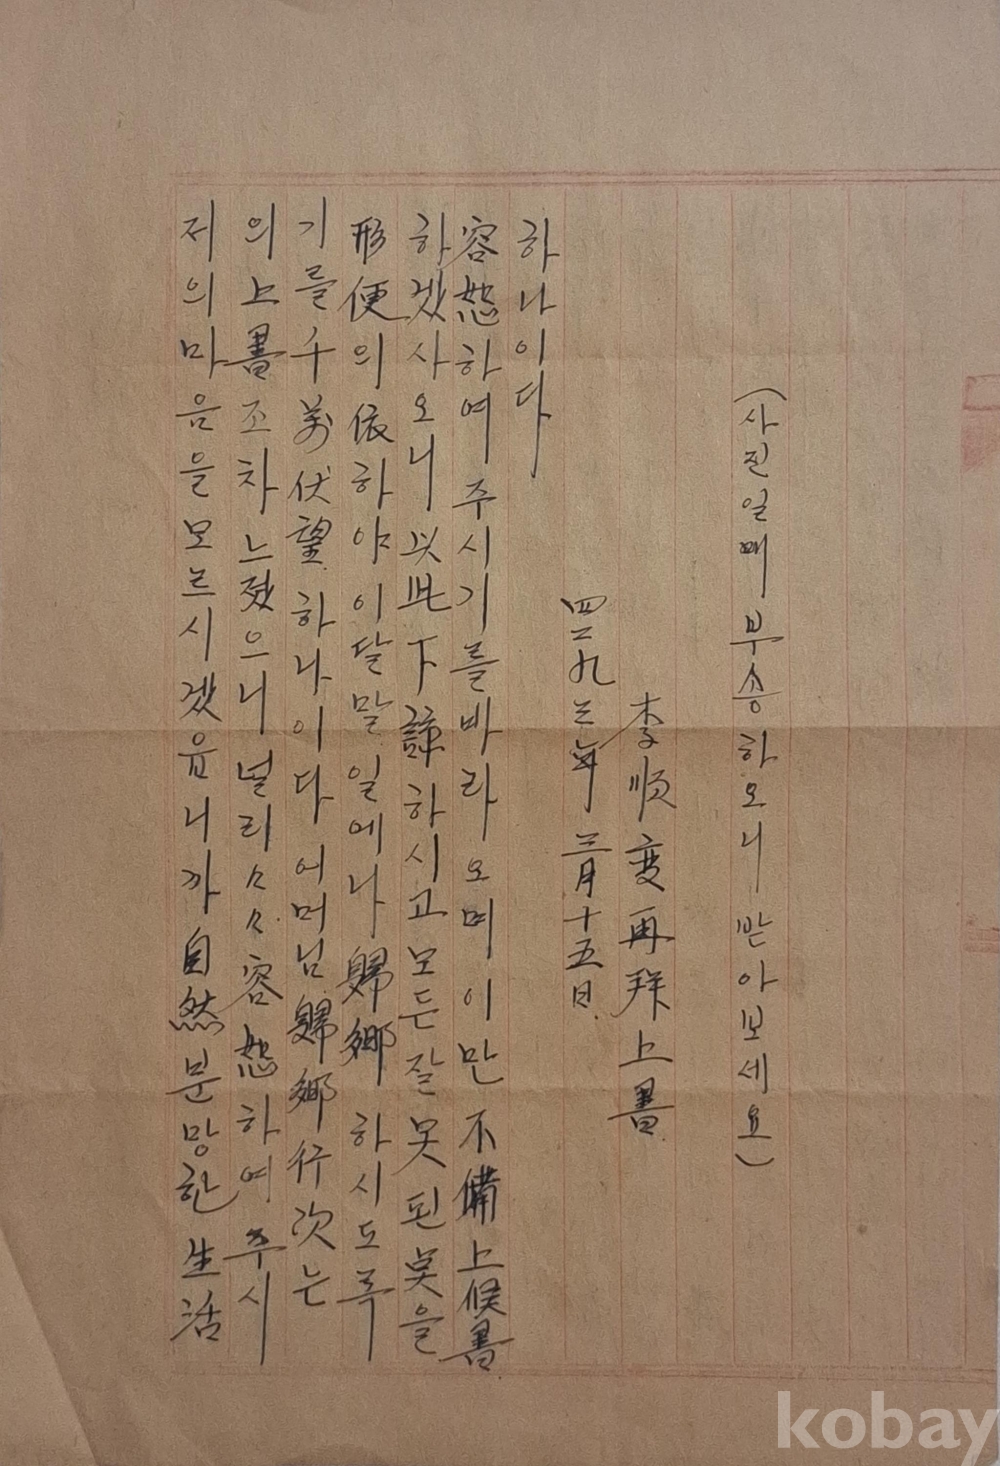 저의마음을모르시겠읍니까自然분망한生活
의上書조차느젔으니널리々々容恕하여주시
기를千萬伏望하나이다어머님歸鄕行次는
形便의依하야이달말일에나歸鄕하시도록
하겠사오니以此下諒하시고모든잘못된点을
容恕하여주시기를바라오며이만不備上候書
하나이다
四二九三年三月十五日
李順変再拜上書
(사진일매부송하오니받아보세요)
kobay